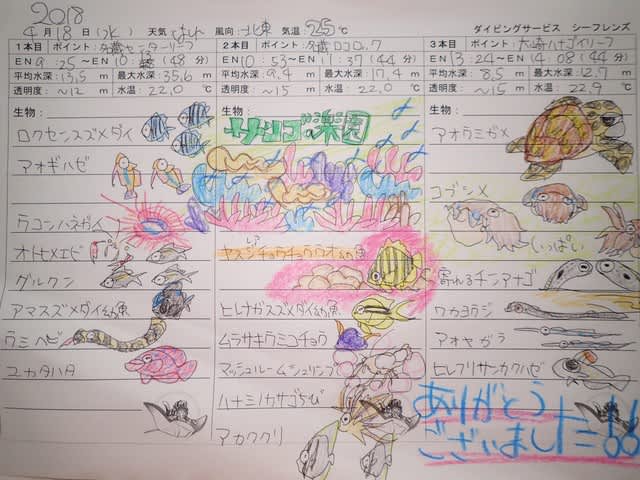 2018
4月18日(水) 天気 風向:北東 気温:25℃ ダイビングサービス シーフレンズ
1本目 ポイント:外蔵センターリーフ
EN 9:25~EN 10: (48分)
平均水深:13.5m 最大水深:35.6m
透明度:~12m 水温:22.0℃
生物:
ロクセンスズメダイ
アオギハゼ
ウコンハネガイ
オトヒメエビ
グルクン
アマスズメダイ幼魚
ウミヘビ
ユカタハタ
2本目 ポイント:外蔵ロロロック
EN 10:53~EN 11:37(44分)
平均水深:9.4m 最大水深:17.4m
透明度:~15m 水温:22.0℃
生物:
サンゴの楽園
レア
ヤスジチョウチョウウオ
ヒレナガスズメダイ幼魚
ムラサキウミコチョウ
マッシュルームシュリンプ
ハナミノカサゴちび
アカククリ
3本目 ポイント:大崎ハナゴイリーフ
EN 13:24~EN 14:08(44分)
平均水深:8.5m 最大水深:12.7m
透明度:~15m 水温:22.9℃
生物:
アオウミガメ
コブシメ
いっぱい
寄れるチンアナゴ
ワカヨウジ
アオヤガラ
ヒレフリサンカクハゼ
ありがとう
ございました!!